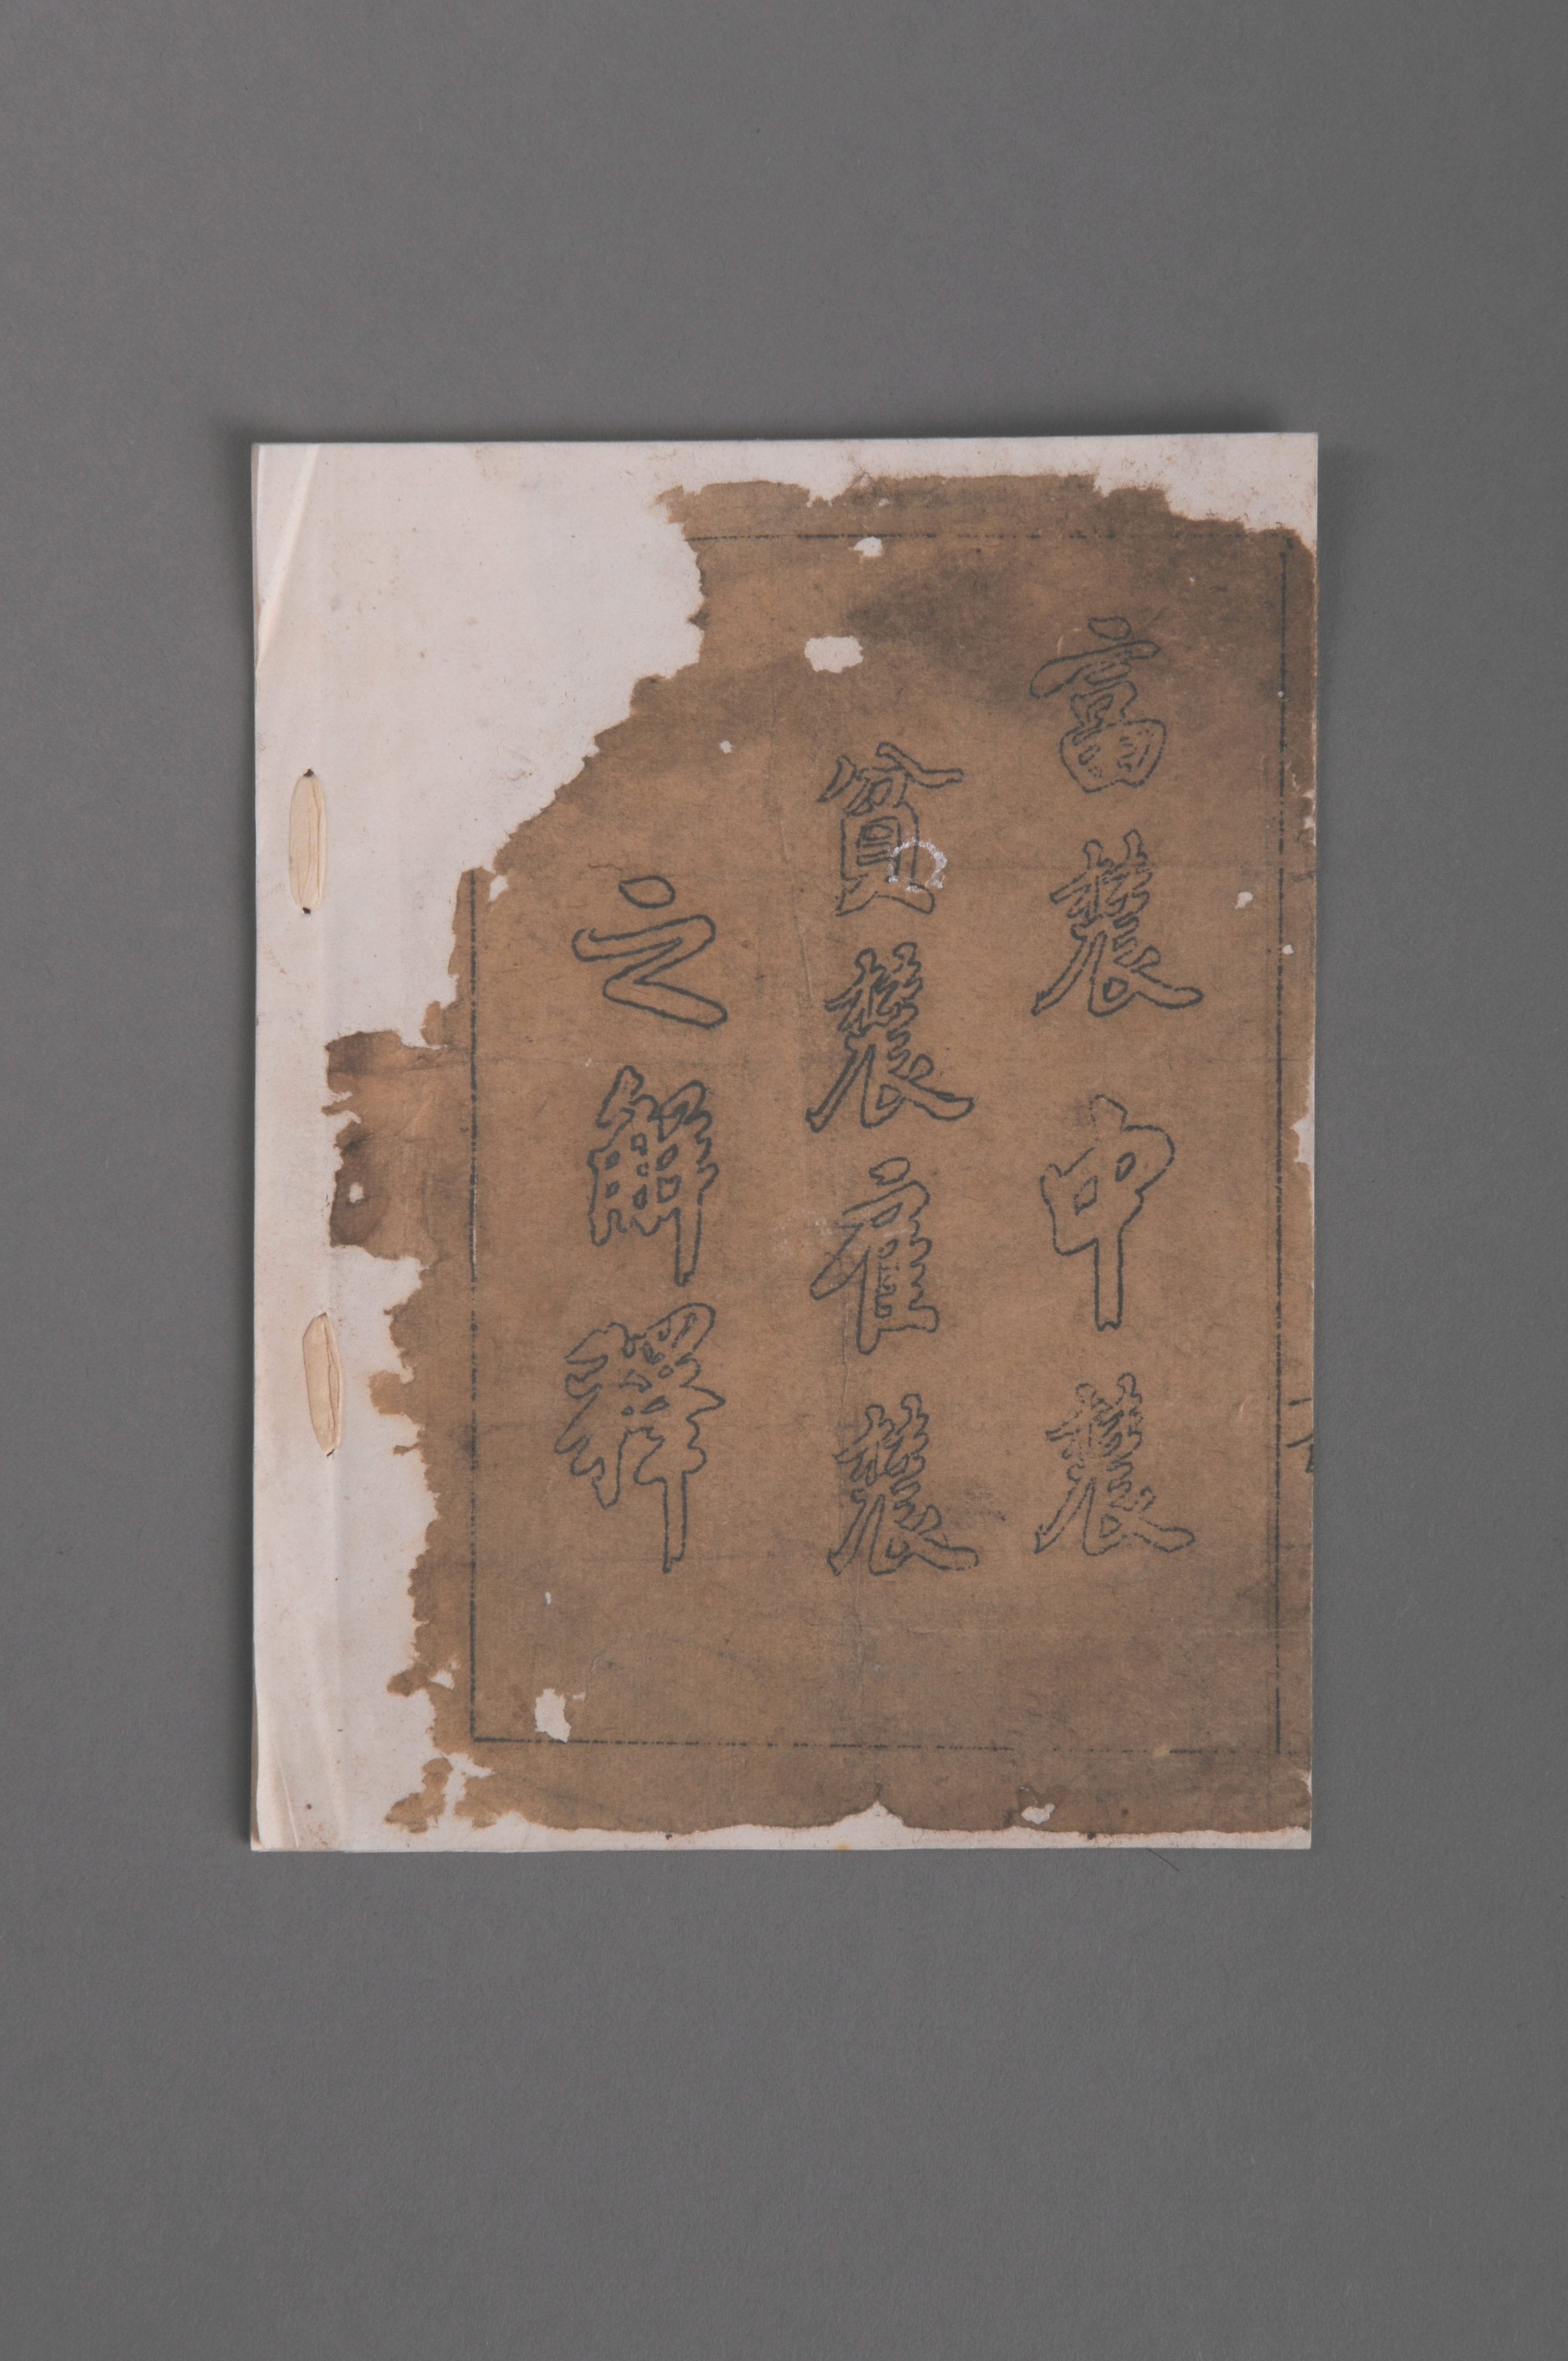 富農中農
貧農雇農
之解釋